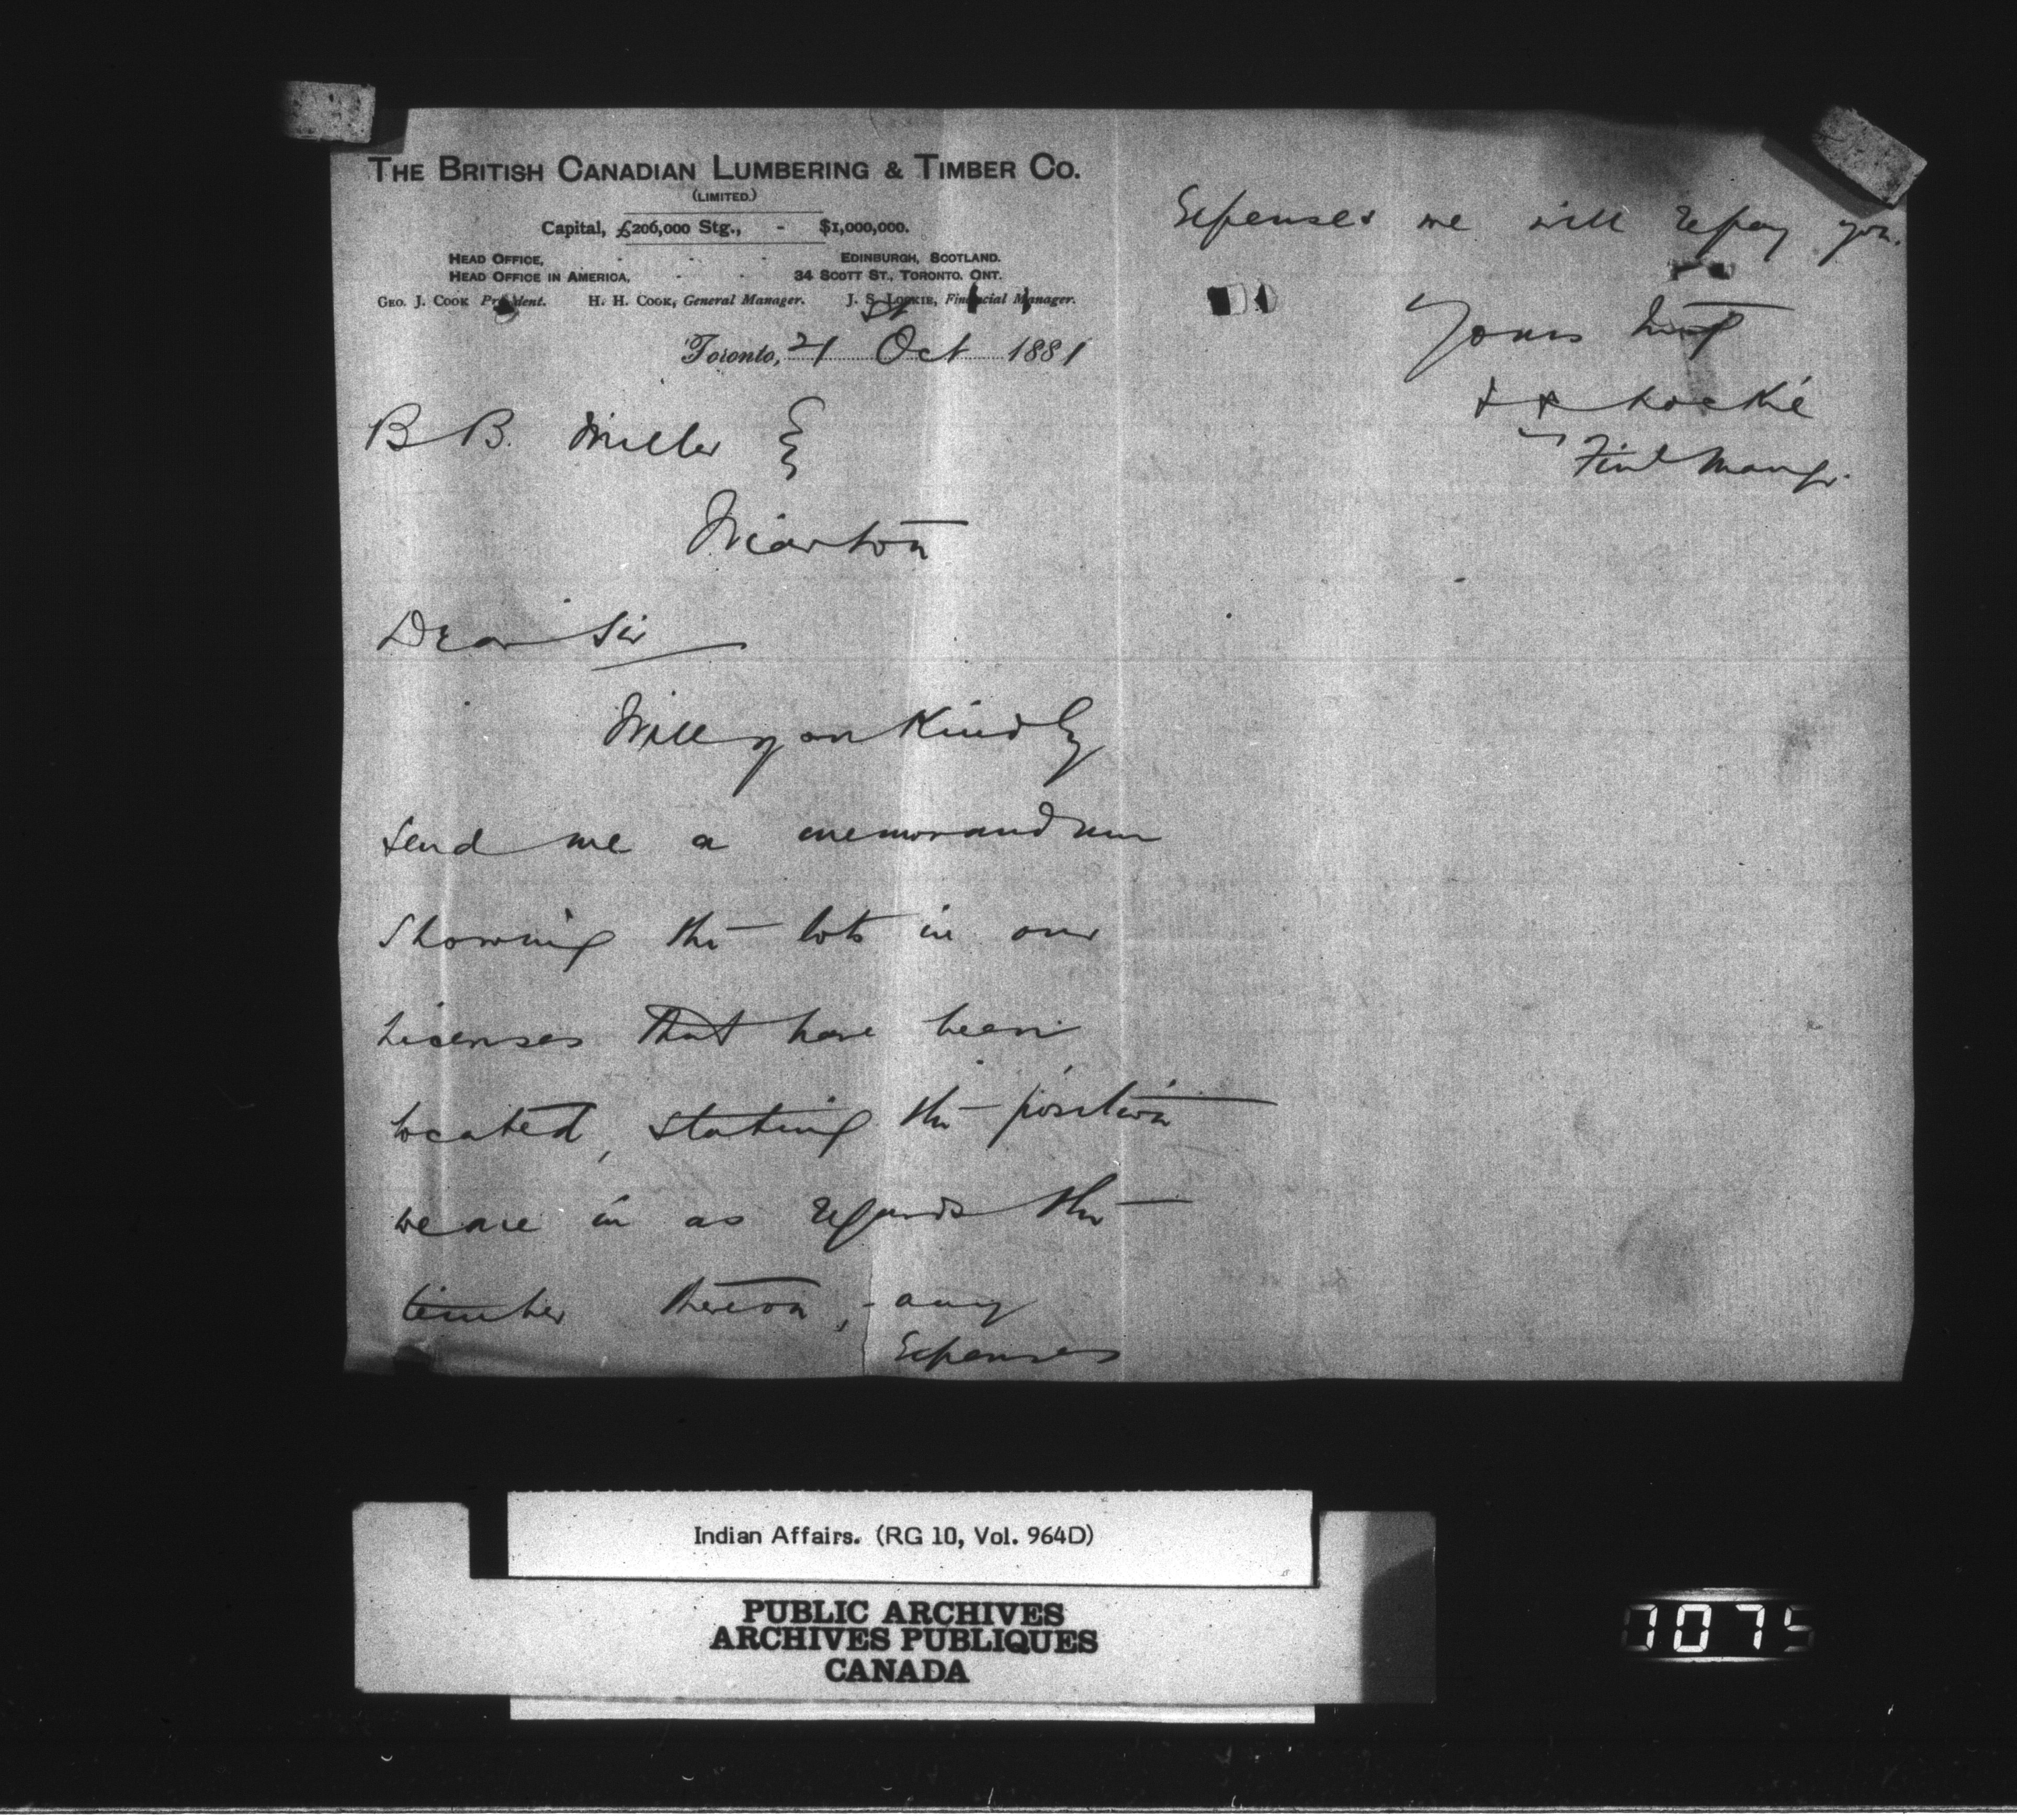 THE BRITISH CANADIAN LUMBERING & TIMBER CO.
(LIMITED.)
Capital, £206,000 Stg., - $1,000,000.
HEAD OFFICE, - - - EDINBURGH, SCOTLAND.
HEAD OFFICE IN AMERICA, - - 34 SCOTT ST., TORONTO, ONT.
GEO. J. COOK President. H. H. COOK, General Manager. J. S. LOCKIE, Financial Manager.
Toronto, 21st Oct 1881
B B. Miller
Wiarton
Dear Sir
Will you Kindly
send me a memorandum
showing the lots in our
Licenses that have been
located, stating the position
we are in as regards the
timber thereon, - any
Expenses
Expenses we will repay you.
Yours
J S Lockie
Finl Mangr.
Indian Affairs. (RG 10, Vol. 964D)
PUBLIC ARCHIVES
ARCHIVES PUBLIQUES
CANADA
1075